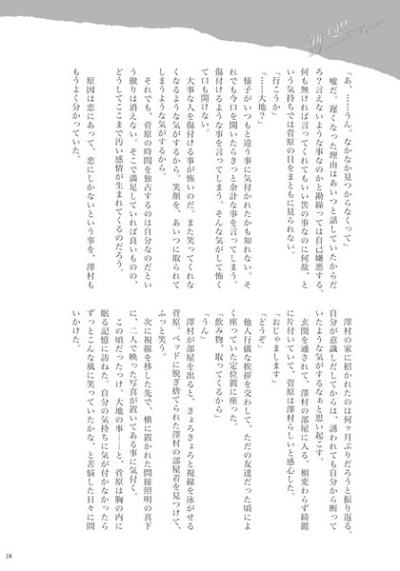 「あ、……うん、なかなか見つからなくって」
嘘だ。遅くなった理由はあいつと話していたからだ
ろ？言えないような事なのかと勘繰っては自己嫌悪する。
何も無ければ言ってくれてもいい筈の事なのに何故、と
いう気持ちでは菅原の目をまともに見られない。
「行こうか」
「……大地？」
様子がいつもと違う事に気付かれたかも知れない。そ
れでも今口を開いたらきっと余計な事を言ってしまう。
傷付けるような事を言ってしまう。そんな気がして怖く
て口も開けない。
大事な人を傷付ける事が怖いのだ。また笑ってくれな
くなるような気がするから。笑顔を、あいつに取られて
しまうような気がするから。
それでも、菅原の時間を独占するのは自分なのだとい
う傲りは消えない。そこで満足していれば良いものの、
どうしてここまで汚い感情が生まれてくるのだろう。
原因は恋にあって、恋にしかないという事を、澤村も
もうよく分かっていた。
澤村の家に招かれたのは何ヶ月ぶりだろうと振り返る。
自分が意識しだしてからは、誘われても自分から断って
いたような気がするなあと思い起こす。
玄関を通されて、澤村の部屋に入る。相変わらず綺麗
に片付いていて、菅原は澤村らしいと感心した。
「おじゃまします」
「どうぞ」
他人行儀な挨拶を交わして、ただの友達だった頃によ
く座っていた定位置に座った。
「飲み物、取ってくるから」
「うん」
澤村が部屋を出ると、きょろきょろと視線を泳がせる
菅原。ベッドに脱ぎ捨てられた澤村の部屋着を見つけて、
ふっと笑う。
次に視線を移した先で、横に置かれた間接照明の真下
に、二人で映った写真が置いてある事に気付く。
この頃だったっけ。大地の事――と、菅原は胸の内に
眠る記憶に訪ねた。自分の気持ちに気が付かなかったら
ずっとこんな風に笑っていたかな、と苦悩した日々に問
いかけた。
28